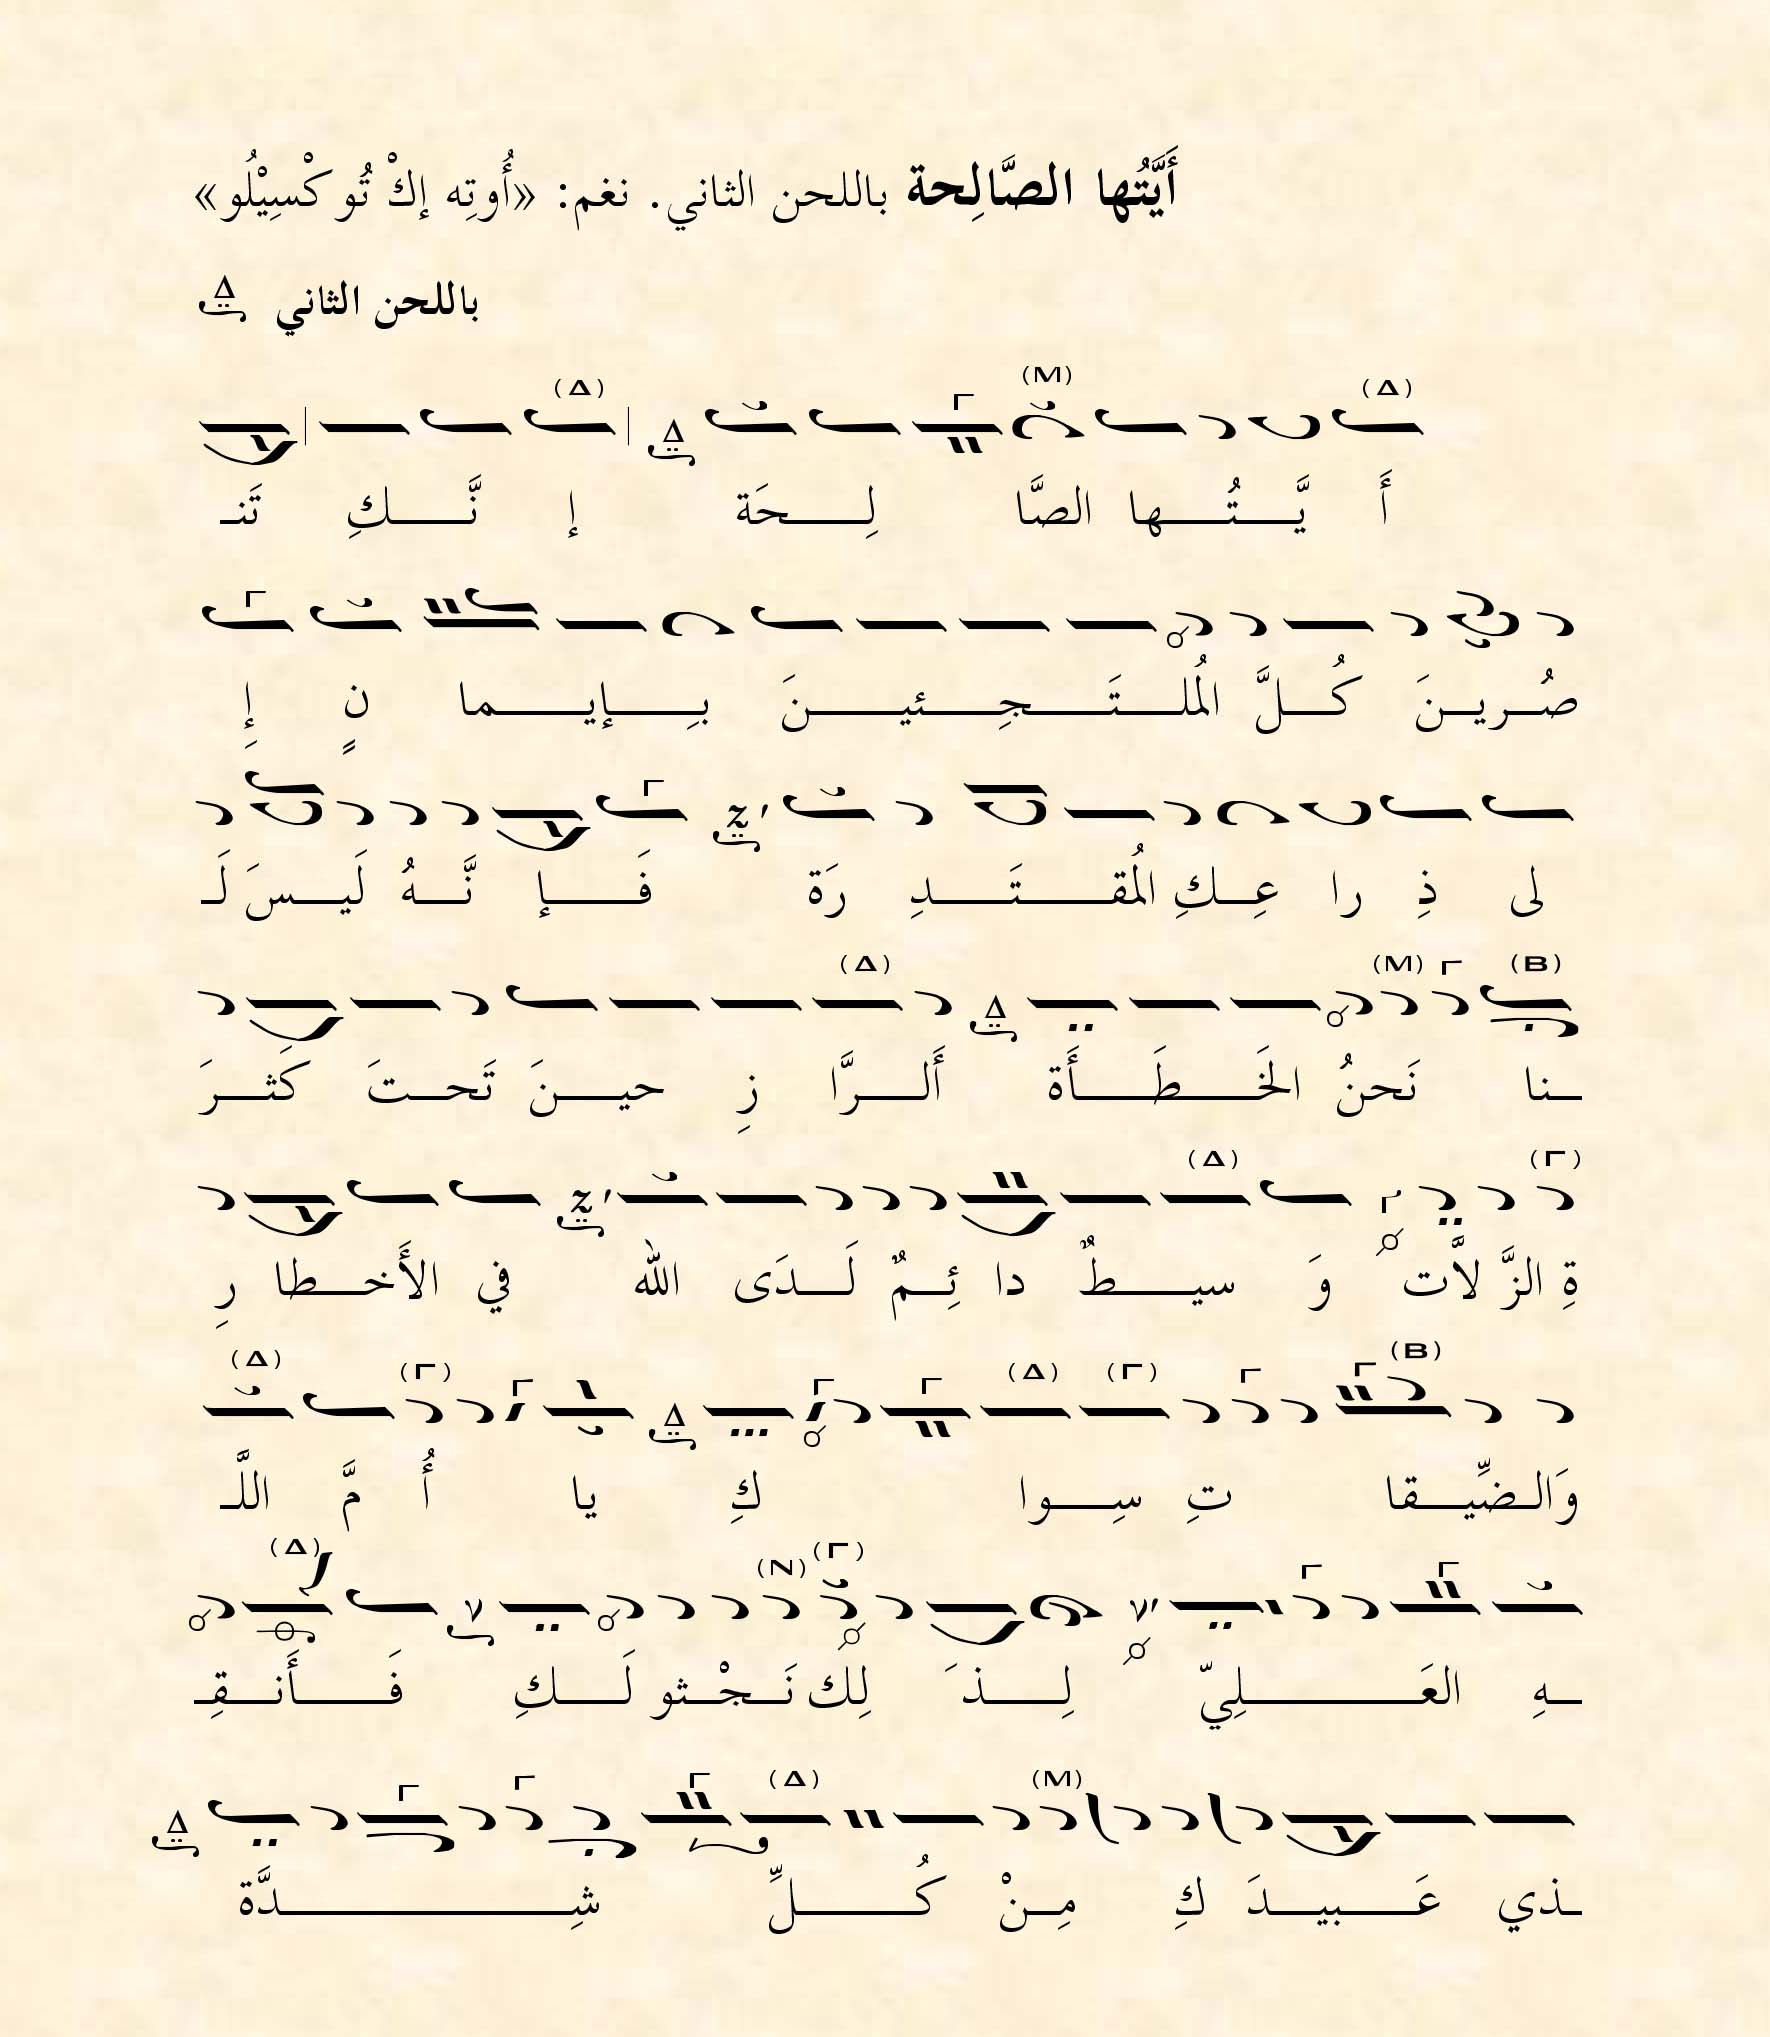 أَيَّتُها الصَّالِحة باللحن الثاني. نغم: «أُوتِه إكْ تُو كْسِيْلُو»
باللحن الثاني
أَ يَّـــتُــــها الصَّا لِــــحَة إ نَّــــكِ تَنـ
صُــريــنَ كُــلَّ المُلــتَـــجِــــئيــــنَ بــِــإيــــما نٍ إِ
لى ذِ را عِــكِ المُقــــتَـــدِ رَة فَــــإ نَّــهُ لَيــسَ لَـ
ـنا نَحنُ الخَــــطَــــأَة أَلــرَّا زِ حيــنَ تَحــتَ كَثــرَ
ةِ الزَّ لاَّت وَ سيــــطٌ دا ئِــمٌ لَــدَى الله في الأَخــطا رِ
وَالـضِّيــقا تِ سِــوا كِ يا أُ مَّ اللَّـ
ـهِ العَــــــلِيّ لِــــذَ لِكَ نَــجْــثو لَــكِ فَــــأَنــقِـ
ـذي عَــبيــدَ كِ مِــنْ كُــــلِّ شِــــــــدَّة